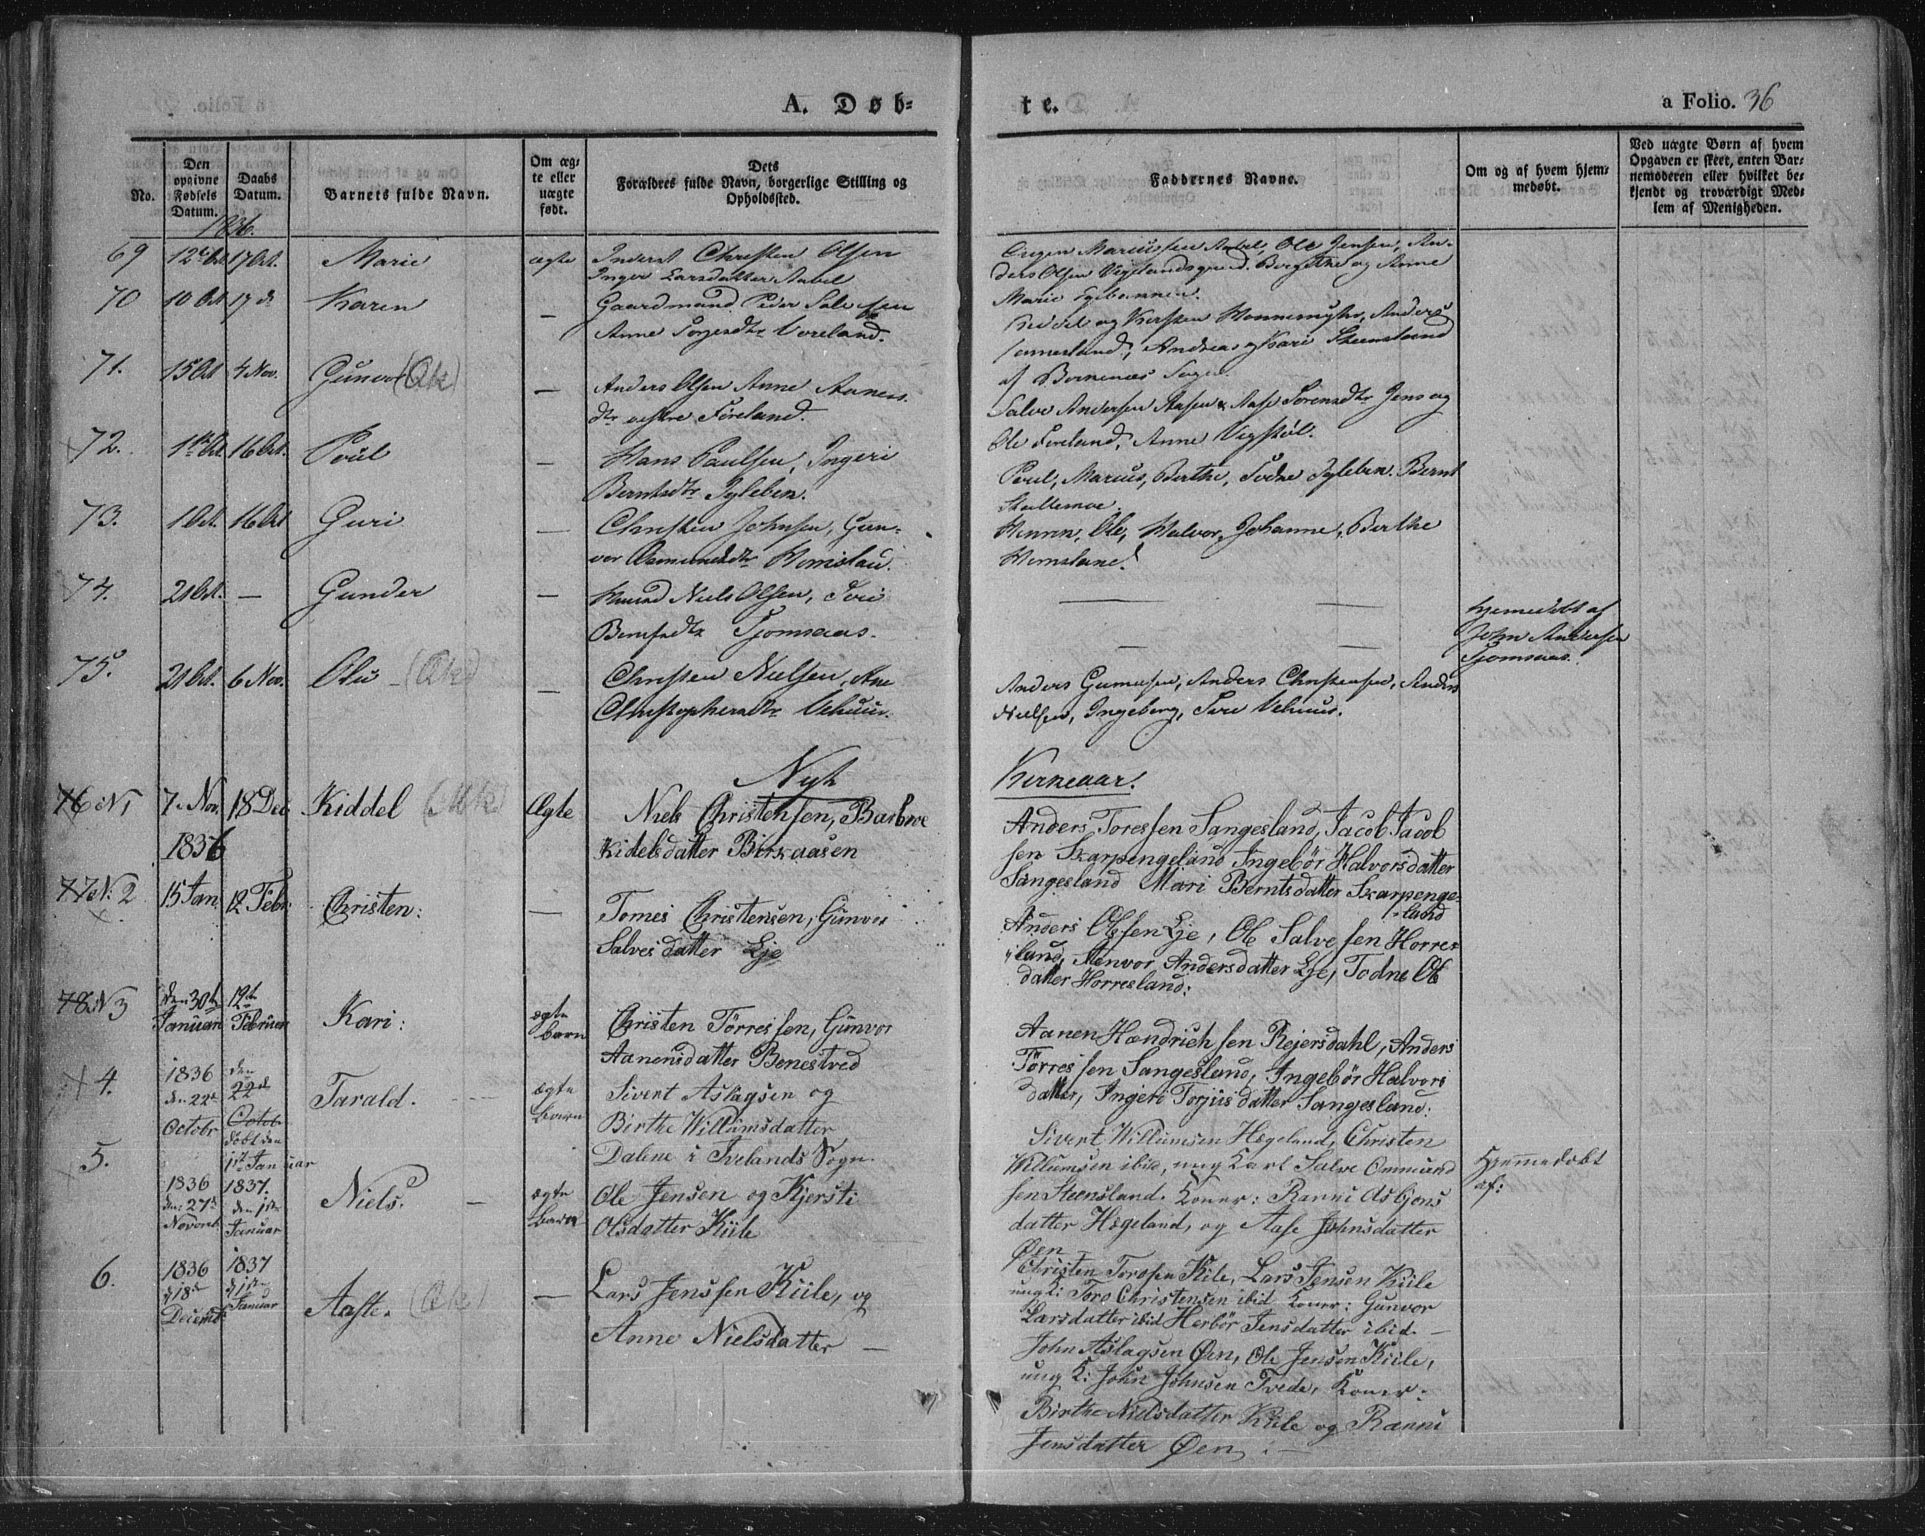 A. Døb-
te.
a Folio. 36
No.
Den opgivne Fødsels Datum.
Daabs Datum.
Barnets fulde Navn.
Om æg-
te eller
uægte
født.
Dets
Forældres fulde Navn, borgerlige Stilling og
Opholdssted.
Faddernes Navne.
Om og af hvem hjem-
medøbt.
Ved uægte Børn af hvem
Opgaven er skeet, enten Bar-
nemoderen eller hvilket be-
kjendt og troværdigt Med-
lem af Menigheden.
1836.
69 12te Oct 17 Oct. Marie ægte Inderst Christen Olsen
Inger Larsdatter Aabel
Mariussen Aabel, Ole Jensen, An-
ders Olsen Vigelandsgaard. Bergethe og Anne
Marie
70 10 Oct 17 d Karen — Gaardmand Peder Salvesen
Anne Torjersdtr Voreland.
Kiddel og Kirsten Honnemyhr, Anders
Andreas og Kari Steensland
af Sogn.
71. 15 Oct 4 Nov. Gunvor (Qk) — Anders Olsen Anne Aanens-
dtr vestre Foreland.
Salve Andersen Aasen, Aase Sørensdtr Jens og
Ole Foreland, Anne Vigstøl.
72. 1te Oct 16 Oct. Poül — Hans Paulsen, Ingeri
Berntsdtr Igleben.
Poul, Marius, Berthe, Todne Igleben. Bernt
73. 1 Oct. 16 Oct Guri — Christen Johnsen, Gun-
vor Osmundsdtr Homsland.
Ole, Halvor, Johanne, Berthe
Homsland.
74. 21 Oct. — Gunder — Niels Olsen, Tori
Berntsdtr Tjomsaas.
Hjemmedøbt af
John Andersen
Tjomsaas.
75. 21 Oct. 6 Nov. Olu (Qk) — Christen Nielsen, Ane
Christophersdtr Vehuus.
Anders Gunnersen, Anders Christensen, Anders
Nielsen, Ingeborg, Tore Vehuus.
Nyt Kirkeaar.
76 N1 7. Nov. 18 Dec Kiddel (Mk) Ægte Niels Christensen, Barbroe
1836 Kidelsdatter Birkaasen
Anders Toressen Sangesland, Jacob Jacob
sen Skarpengeland Ingebör Halvorsdatter
Sangesland Mari Berntsdatter Skarpenge-
land
77 N. 2 15 Jan 12 Febr. Christen: — Tomes Christensen, Günvor
Salvesdatter Eje
Anders Olssen Eje, Ole Salvesen Horres-
land, Aenvor Andersdatter Eje, Todne Ols
datter Horresland:
78 N 3 den 30te Januar 19te Februar Kari: ægte
barn Christen Törressen, Günvor
Aanensdatter Benestved
Aanen Hændrichsen Rejersdahl, Anders
Törressen Sangesland, Ingebör Halvors
datter, Ingeri Torjusdatter Sangesland:
4. 1836 den 22de Octobr den 22de Octobr
döbt den
1ste Januar
Tarald. ægte
barn Sivert Aslagsen og
Birthe Willumsdatter
Dalene i Ivelands Sogn.
Sivert Willumsen Hægeland, Christen
Willumsen ibid, ung Karl Salve Ommund
sen Steensland. Koner: Ranni Asbjöns
datter Hægeland, og Aase Johnsdatter
Øen —
5. 1836 den 27de Novemb. 1837. den 1ste Januar Niels. — ægte
barn Ole Jensen og Kjersti
Olsdatter Küle
Hjemmedøbt
af:
Christen Torosen Kile, Lars Jensen Küle
ung K: Toro Christensen ibid Koner: Gunvor
Larsdatter ibid Herbör Jensdatter ibid. —
6. 1836 d 18de Decemb 1837 d 1ste Januar Aaste. (Qk) — Lars Jenssen Küle, og
Anne Nielsdatter —
John Aslagsen Øen, Ole Jensen Küle,
ung K: John Johnsen Tvede, Koner:
Birthe Nielsdatter Küle og Ranni
Jensdatter Øen. —